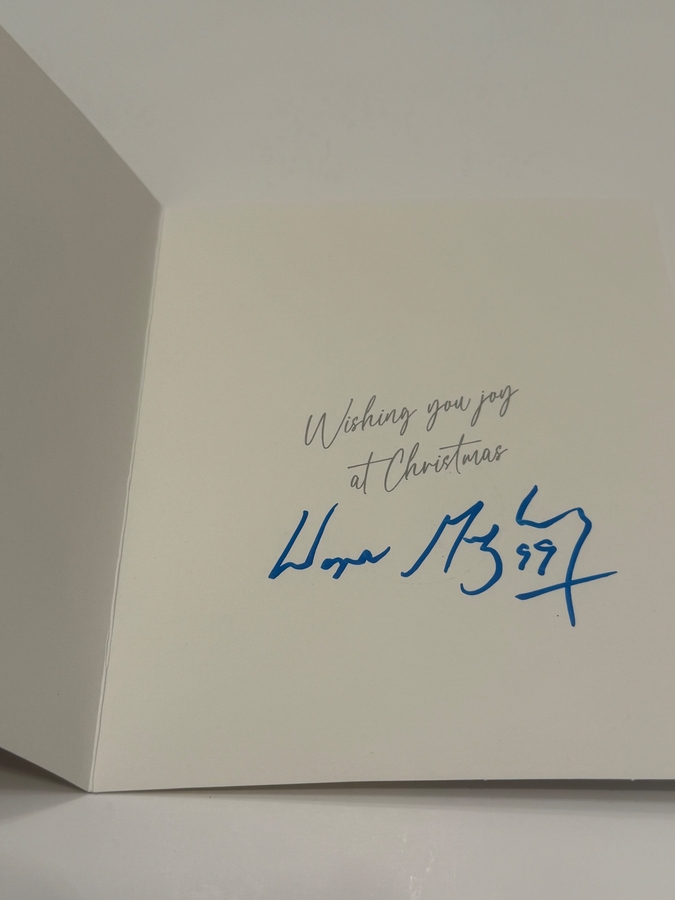 Wishing you joy
at Christmas
99